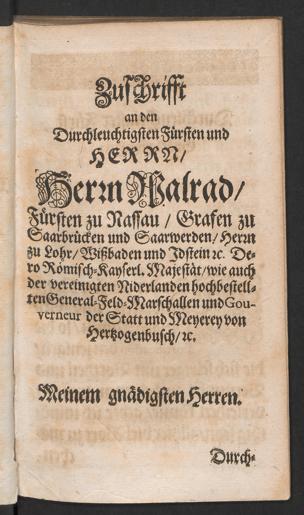 Zuschrifft
an den
Durchleuchtigsten Fürsten und
HERRN/
Herrn Walrad/
Fürsten zu Nassau / Grafen zu
Saarbrücken und Saarwerden/ Herrn
zu Lohr/ Wißbaden und Idstein ꝛc. De-
ro Römisch-Kayserl. Majestät/ wie auch
der vereinigten Niderlanden hochbestell-
ten General-Feld-Marschallen und Gou-
verneur der Statt und Meyerey von
Hertzogenbusch/ ꝛc.
Meinem gnädigsten Herren.
Durch-